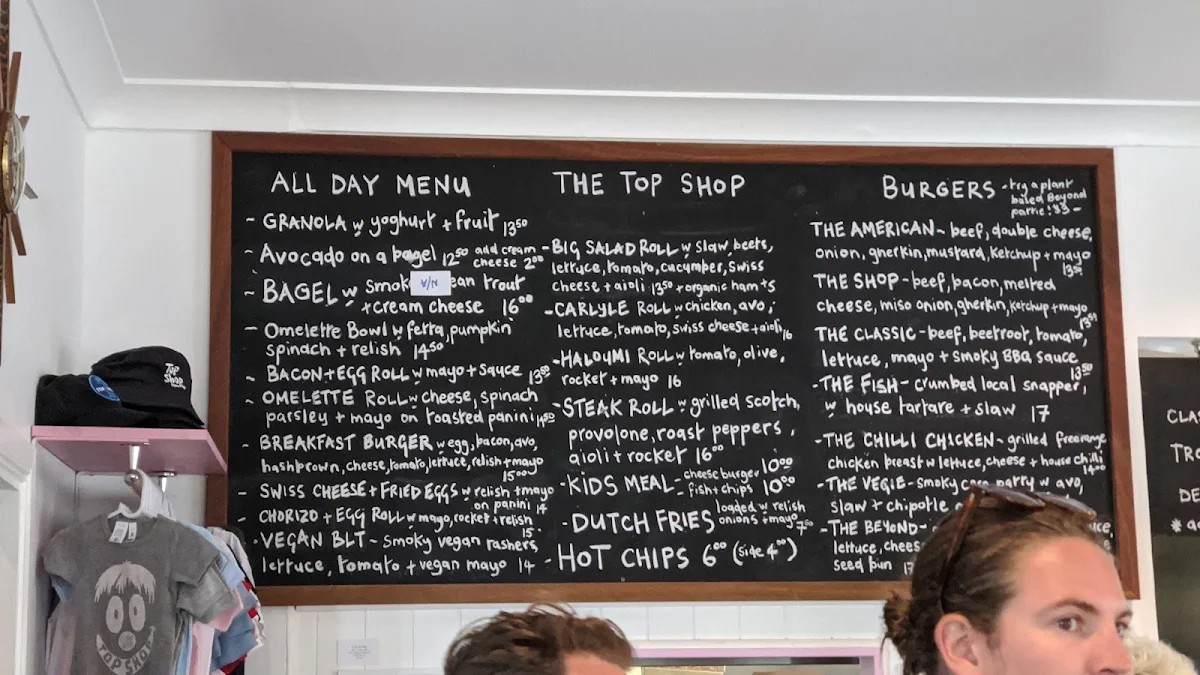 ALL DAY MENU
- GRANOLA w yoghurt + fruit 13⁵⁰
- Avocado on a bagel 12⁵⁰ add cream
cheese 2⁰⁰
- BAGEL w Smok ean trout
+ cream cheese 16⁰⁰
N/A
- Omelette Bowl w fetta, pumpkin
spinach + relish 14⁵⁰
- BACON + EGG ROLL w mayo + sauce 13⁵⁰
- OMELETTE ROLL w cheese, spinach
parsley + mayo on toasted panini 14⁵⁰
- BREAKFAST BURGER w egg, bacon, avo,
hashbrown, cheese, tomato, lettuce, relish + mayo
15⁰⁰
- SWISS CHEESE + FRIED EGGS w relish + mayo
on panini 14
- CHORIZO + EGG ROLL w mayo, rocket + relish
15
- VEGAN BLT - Smoky vegan rashers,
lettuce, tomato + vegan mayo 14
THE TOP SHOP
- BIG SALAD ROLL w slaw, beets,
lettuce, tomato, cucumber, swiss
cheese + aioli 13⁵⁰ + organic ham + $
- CARLYLE ROLL w chicken, avo,
lettuce, tomato, swiss cheese + aioli 16
- HALOUMI ROLL w tomato, olive,
rocket + mayo 16
- STEAK ROLL w grilled scotch,
provolone, roast peppers,
aioli + rocket 16⁰⁰
- KIDS MEAL - cheese burger 10⁰⁰
fish + chips 10⁰⁰
- DUTCH FRIES loaded w relish
onions + mayo 7⁵⁰
- HOT CHIPS 6⁰⁰ (side 4⁰⁰)
BURGERS - try a plant
based Beyond
pattie! $3 -
THE AMERICAN - beef, double cheese,
onion, gherkin, mustard, ketchup + mayo
13⁵⁰
THE SHOP - beef, bacon, melted
cheese, miso onion, gherkin, ketchup + mayo
13⁵⁰
THE CLASSIC - beef, beetroot, tomato,
lettuce, mayo + smoky BBQ sauce
13⁵⁰
- THE FISH - crumbed local snapper,
w house tartare + slaw 17
- THE CHILLI CHICKEN - grilled freerange
chicken breast w lettuce, cheese + house chilli
14⁰⁰
- THE VEGIE - smoky corn patty w avo,
slaw + chipotle
- THE BEYOND - uce
lettuce, chees
seed bun
CLA
TRO
DE
TOP
SHOP
TOP SHOP